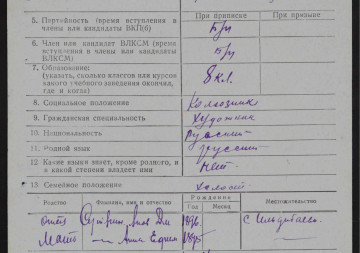 При приписке При призыве
5. Партийность (время вступления в члены или кандидаты ВКП(б) Б/п
6. Член или кандидат ВЛКСМ (время вступления в члены или кандидаты ВЛКСМ) Б/п
7. Образование (указать, сколько классов или курсов какого учебного заведения окончил, где и когда) 8 кл.
8. Социальное положение Колхозник
9. Гражданская специальность Художник
10. Национальность Русский
11. Родной язык русский
12. Какие языки знает, кроме родного, и в какой степени владеет ими нет
13 Семейное положение Холост
Родство Фамилия, имя и отчество Рождение Год Месяц Местожительство
отец 1896 с.
Мать — Анна 1895